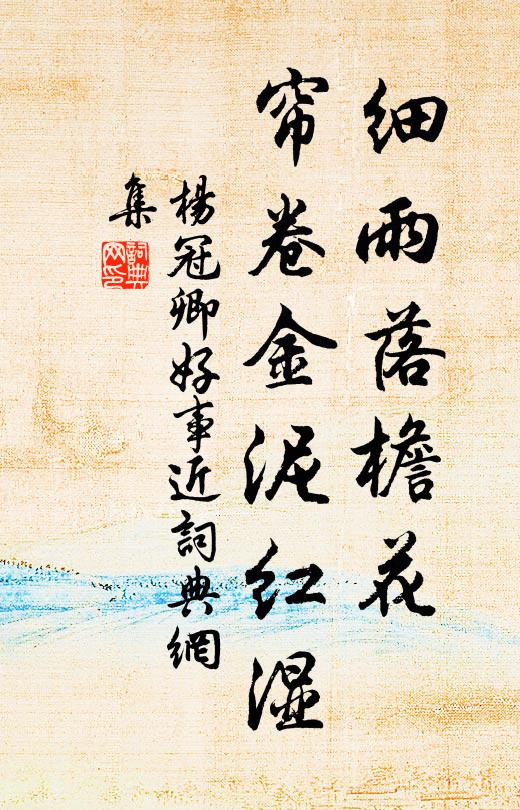 细雨落檐花
帘卷金泥红湿
楊冠卿好事近詞典網
集
詞典
网印